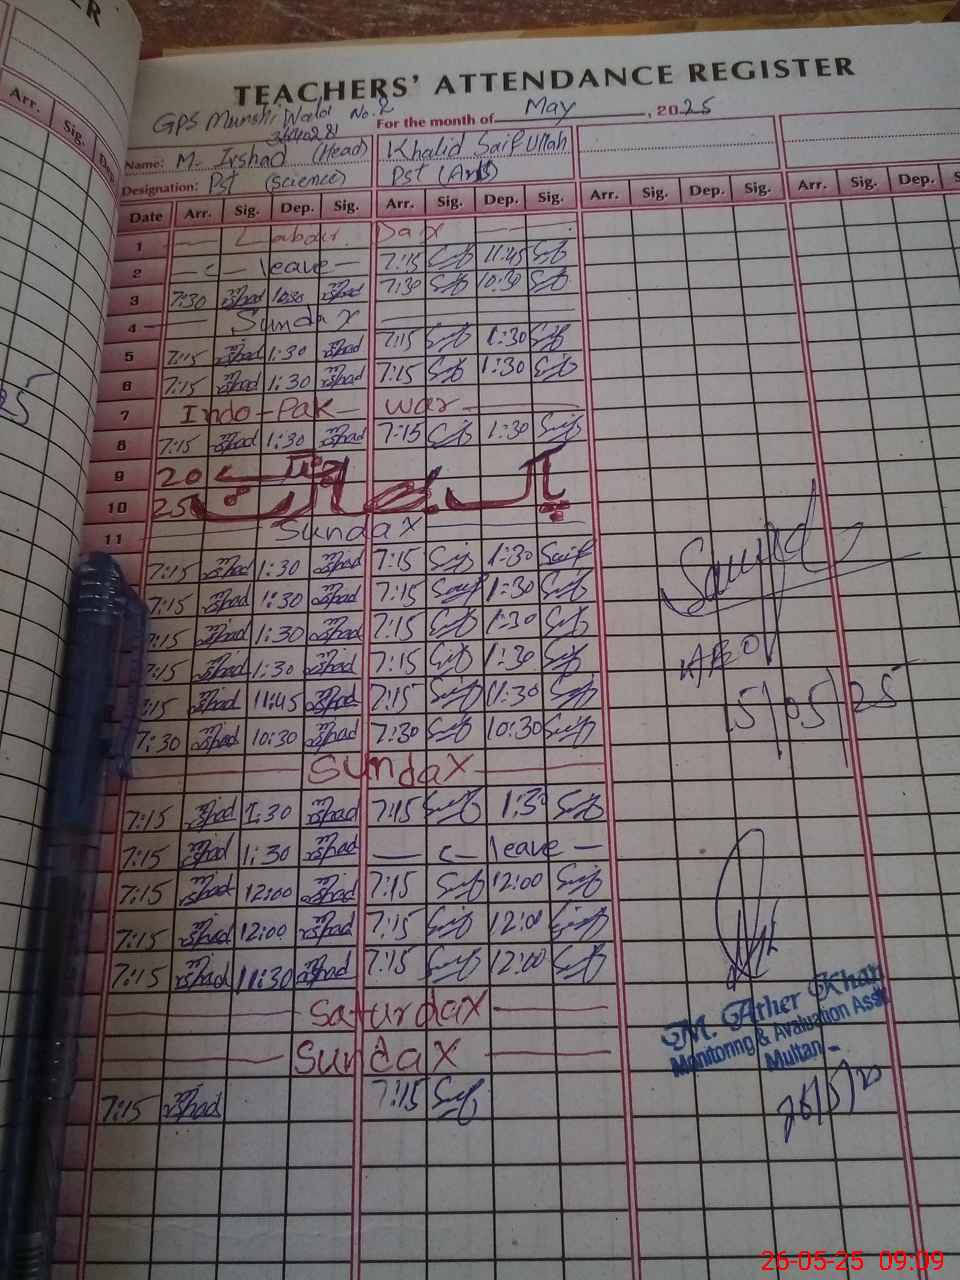 ER
Arr. Sig.
TEACHERS' ATTENDANCE REGISTER
GPS Munshi Wala No. 2
For the month of May, 2025
Name: M. Irshad (Head) Khalid Saif Ullah
Designation: Pst (Science) Pst (Arts)
Date Arr. Sig. Dep. Sig. Arr. Sig. Dep. Sig. Arr. Sig. Dep. Sig. Arr. Sig. Dep. S
1 Labour Day
2 c leave 7:15 Saif 11:45 Saif
3 7:30 Irshad 10:30 Irshad 7:30 Saif 10:30 Saif
4 Sunday
5 7:15 Irshad 1:30 Irshad 7:15 Saif 1:30 Saif
6 7:15 Irshad 1:30 Irshad 7:15 Saif 1:30 Saif
7 Indo-Pak war
8 7:15 Irshad 1:30 Irshad 7:15 Saif 1:30 Saif
9 20
10 25
11 Sunday
7:15 Irshad 1:30 Irshad 7:15 Saif 1:30 Saif
7:15 Irshad 1:30 Irshad 7:15 Saif 1:30 Saif
7:15 Irshad 1:30 Irshad 7:15 Saif 1:30 Saif
7:15 Irshad 1:30 Irshad 7:15 Saif 1:30 Saif
7:15 Irshad 11:45 Irshad 7:15 Saif 11:30 Saif
7:30 Irshad 10:30 Irshad 7:30 Saif 10:30 Saif
Sunday
7:15 Irshad 1:30 Irshad 7:15 Saif 1:30 Saif
7:15 Irshad 1:30 Irshad c leave
7:15 Irshad 12:00 Irshad 7:15 Saif 12:00 Saif
7:15 Irshad 12:00 Irshad 7:15 Saif 12:00 Saif
7:15 Irshad 11:30 Irshad 7:15 Saif 12:00 Saif
Saturday
Sunday
7:15 Irshad 7:15 Saif
15/05/25
M. Ather Khan
Monitoring & Avaluation Asstt
Multan
26-05-25 09:09